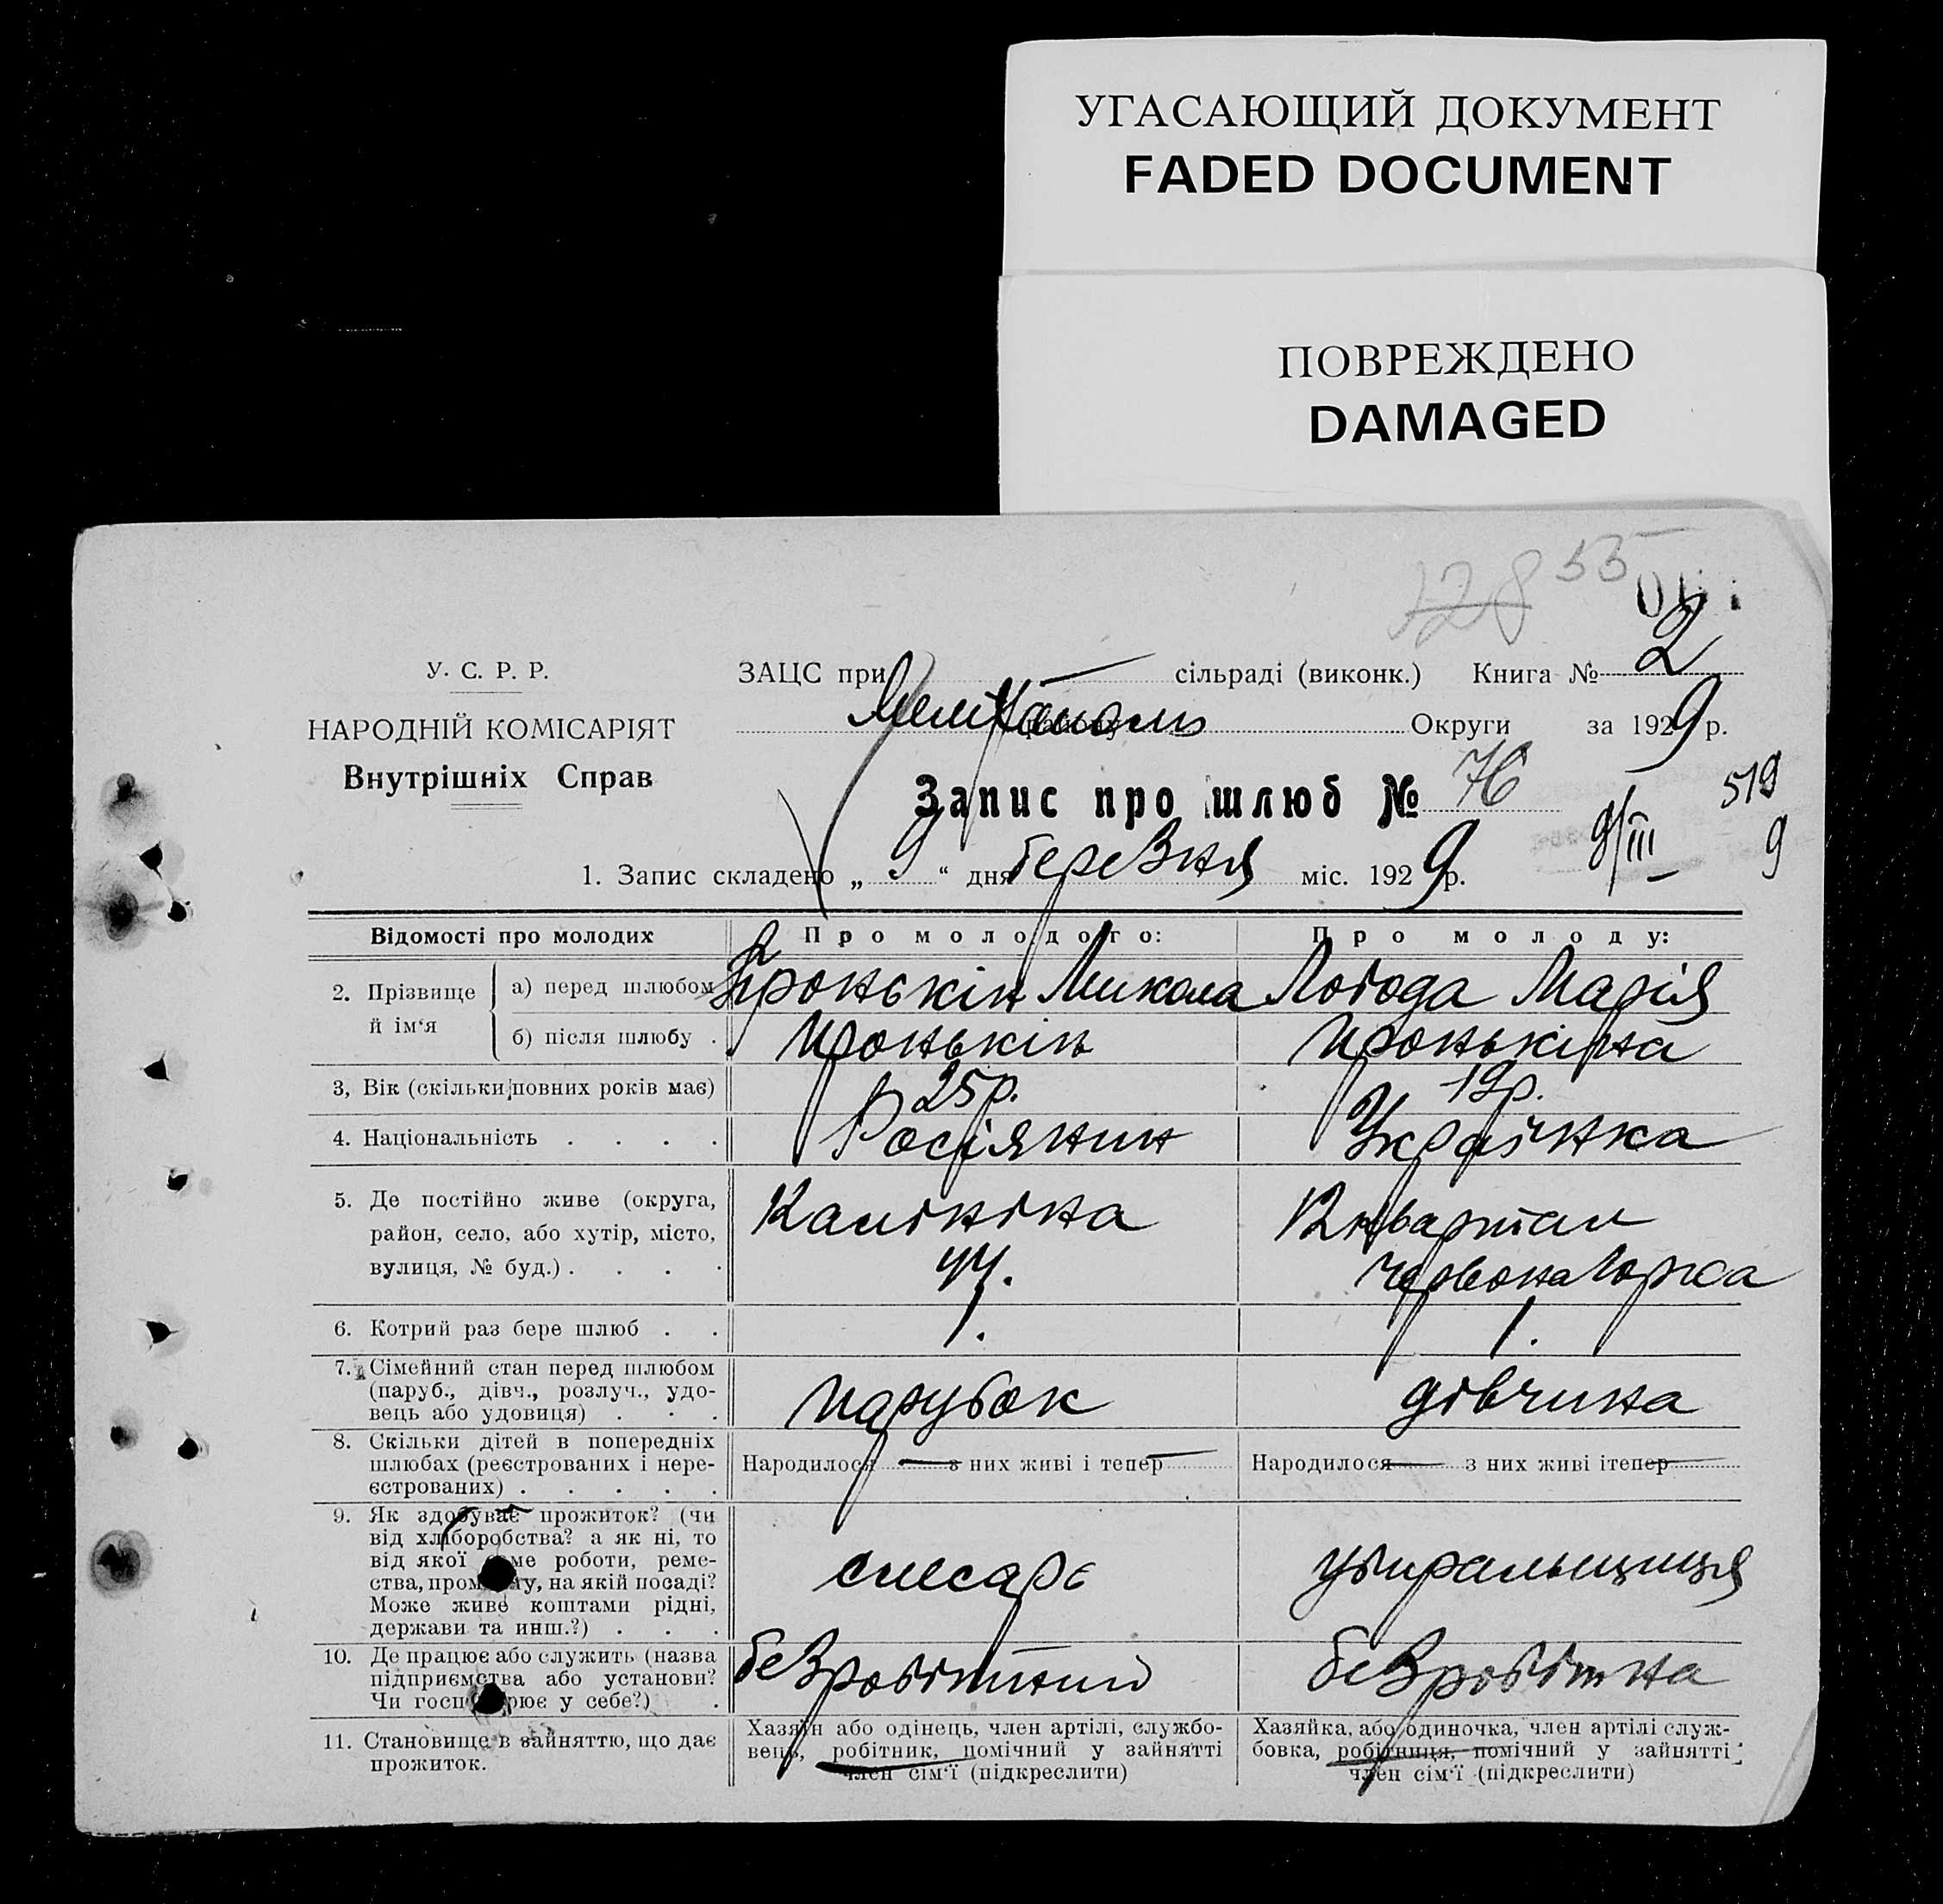 УГАСАЮЩИЙ ДОКУМЕНТ
FADED DOCUMENT
ПОВРЕЖДЕНО
DAMAGED
128 55
У. С. Р. Р.
НАРОДНІЙ КОМІСАРІЯТ
Внутрішніх Справ
ЗАЦС при сільраді (виконк.) Книга № 2
Мелітополь району Округи за 1929 р.
Запис про шлюб № 76
519
9/III 9
1. Запис складено „ 9 “ дня березня міс. 1929 р.
Відомості про молодих
Про молодого:
Про молоду:
2. Прізвище й ім‘я
а) перед шлюбом
Пронькін Микола
Логода Марія
б) після шлюбу .
Пронькін
Пронькіна
3, Вік (скільки повних років має)
25 р.
19 р.
4. Національність . . . .
Росіянин
Українка
5. Де постійно живе (округа,
район, село, або хутір, місто,
вулиця, № буд.) . . . .
Калініна
44.
12 квартал
Червона Горка
6. Котрий раз бере шлюб . .
1.
1.
7. Сімейний стан перед шлюбом
(паруб., дівч., розлуч., удо-
вець або удовиця) . . .
парубок
дівчина
8. Скільки дітей в попередніх
шлюбах (реєстрованих і нере-
єстрованих) . . . . .
Народилося — з них живі і тепер —
Народилося — з них живі ітепер —
9. Як здобуває прожиток? (чи
від хліборобства? а як ні, то
від якої саме роботи, реме-
ства, промислу, на якій посаді?
Може живе коштами рідні,
держави та инш.?) . . .
слесарь
убиральщиця
10. Де працює або служить (назва
підприємства або установи?
Чи господарює у себе?) .
безробітний
безробітна
11. Становище в зайняттю, що дає
прожиток.
Хазяїн або одінець, член артілі, службо-
вець, робітник, помічний у зайнятті
член сім‘ї (підкреслити)
Хазяйка, або одиночка, член артілі служ-
бовка, робітниця, помічний у зайнятті
член сім‘ї (підкреслити)